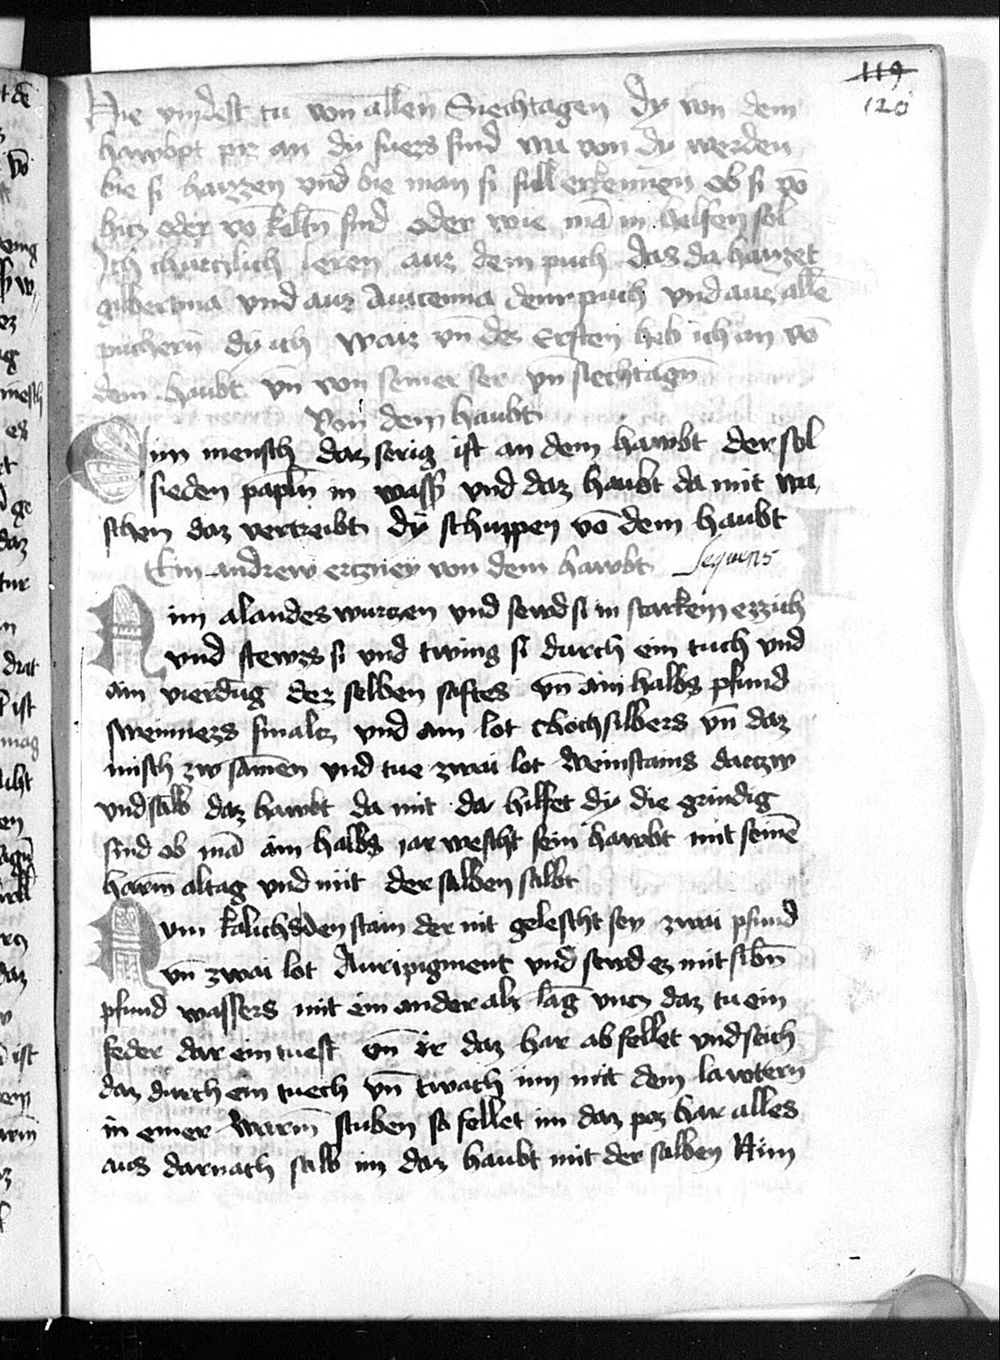 119
120
Hie vindest tu von allen Siechtagen dy von dem
hawbpt piz an dy fuezs sind wa von dy werden
bie si hayzen vnd bie man si sull erkennen ob si võ
hicz oder võ keltñ sind oder wie mã in helfen sol
Ich churczlich leren auz dem puch das da hayzet
gilbertina vnd auz Auicenna dem puch vnd auz allẽ
puchern dy ich waiz vñ des Ersten heb ich an võ
dem haubt vñ von seiner ser vñ siechtagñ
Von dem haubt
Eim mensch daz serig ist an dem hawbt der sol
sieden papeln in wasß vnd daz haubt da mit wa
schen daz vertreibt dy schuppen võ dem haubt
Ein andrew erczney von dem hawbt sequens
Nim alandes wurczen vnd sewd si in starkem ezzich
vnd stewzs si vnd twing si durch ein tuch vnd
ain vierdũg dez selben saftes vñ ain halbs pfund
sweinnezs smalcz vnd ain lot chochsilbers vñ daz
misch zw samẽn vnd tue zwai lot weinstains darczw
vnd salb daz hawbt da mit da hilfet dy die grindig
sind ob mã ain halbs jar wescht sein hawbt mit seinẽ
harm altag vnd mit der salben salbt
Nym kalichs den stain der nit gelescht sey zwai pfund
vñ zwai lot Auripigment vnd sewd ez mit sibñ
pfund wassers mit ein ander als lãg vncz daz tu ein
feder dar ein tuest vñ ir daz har ab fellet vnd seich
daz durch ein tuech vñ twach im mit dem lawtern
in einer warm̃ stuben so fellet im daz poz har alles
aus darnach salb im daz haubt mit der salben Nim